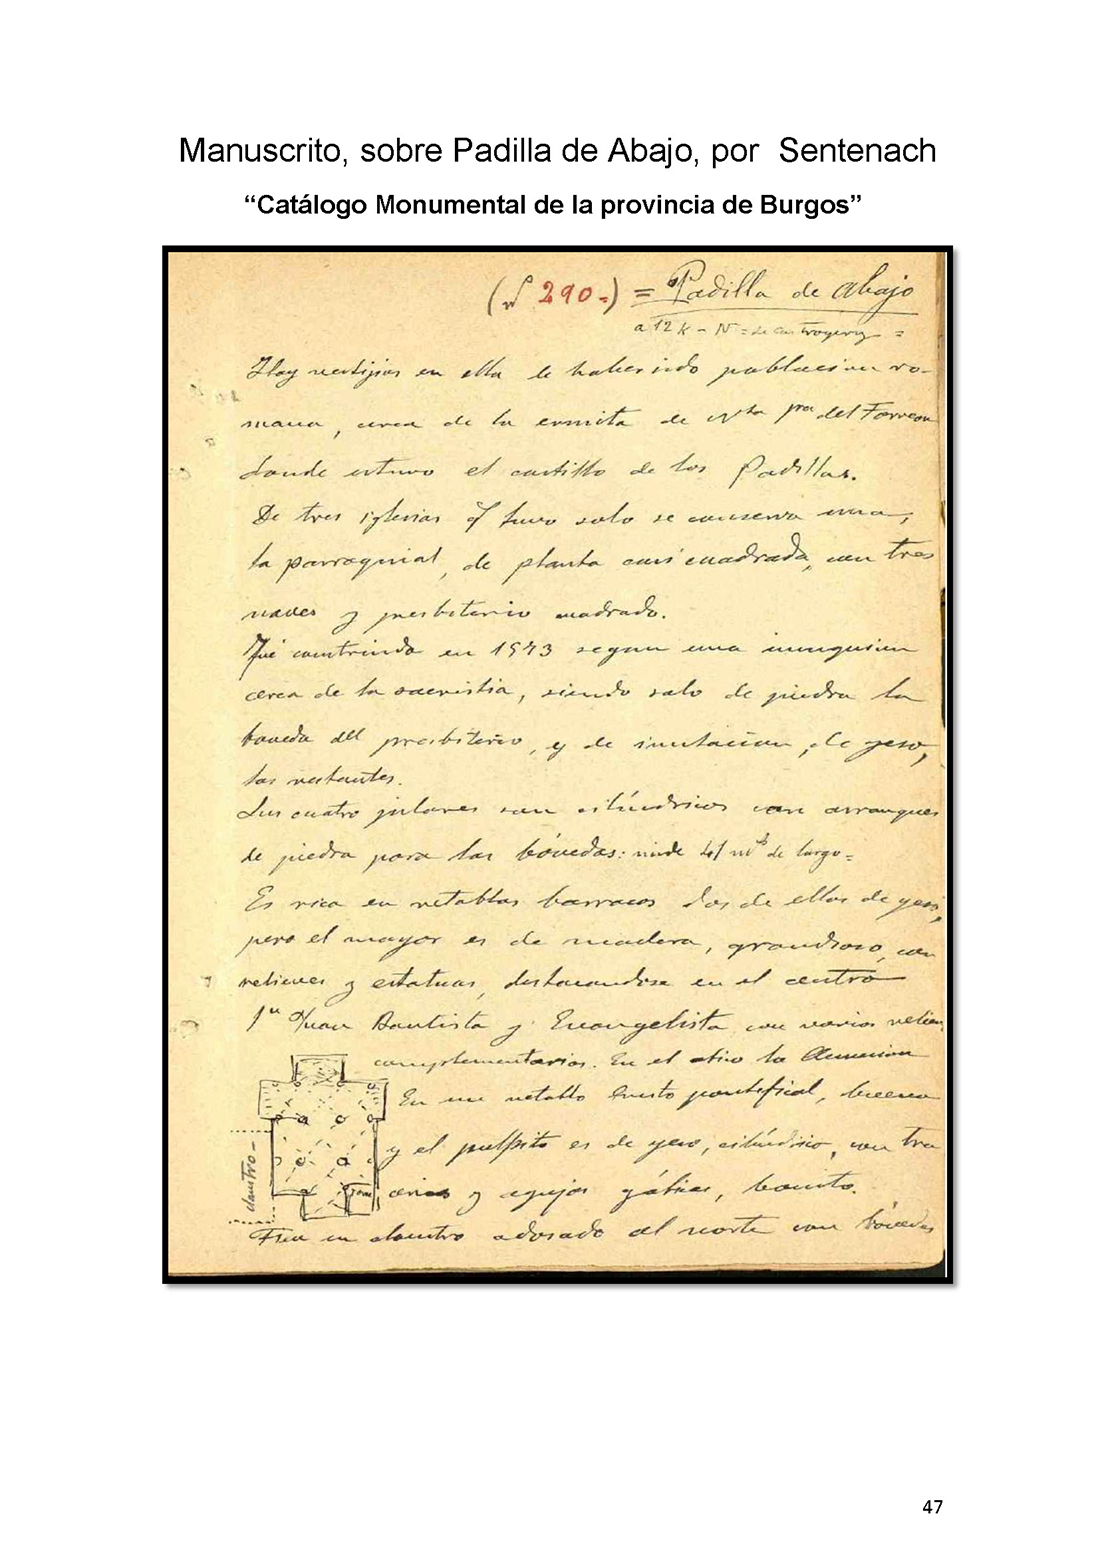 Manuscrito, sobre Padilla de Abajo, por Sentenach
“Catálogo Monumental de la provincia de Burgos”
(nº 290-) = Padilla de Abajo
a 12 k - N = de Castrogeriz =
Hay vestijios en ella de haber sido poblacion ro-
mana, cerca de la ermita de Ntra Sra del Torreon
donde estuvo el castillo de los Padillas.
De tres iglesias q tuvo solo se conserva una,
la parroquial, de planta casi cuadrada, con tres
naves y presbiterio cuadrado.
Fué construida en 1543 segun una
cerca de la sacristia, siendo solo de piedra la
boveda del presbiterio, y de imitacion, de yeso,
las restantes.
Sus cuatro pilares son cilíndricos con arranques
de piedra para las bóvedas: mide 41 ms de largo =
Es rica en retablos barrocos dos de ellos de yeso,
pero el mayor es de madera, grandioso, con
relieves y estatuas, destacandose en el centro
Sn Juan Bautista y Evangelista con varios reliev
complementarios. En el atico la Asuncion
En un retablo Cristo pontifical, bueno
y el pulpito es de yeso, cilíndrico, con tra
cerias y agujas góticas, bonito.
claustro -
torre
Tiene un claustro adosado al norte con bóvedas
47